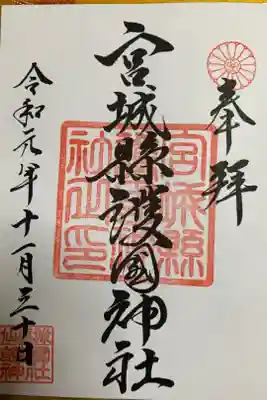 奉拝
宮城縣護國神社
令和元年十一月三十日
宮城縣護國神社之印